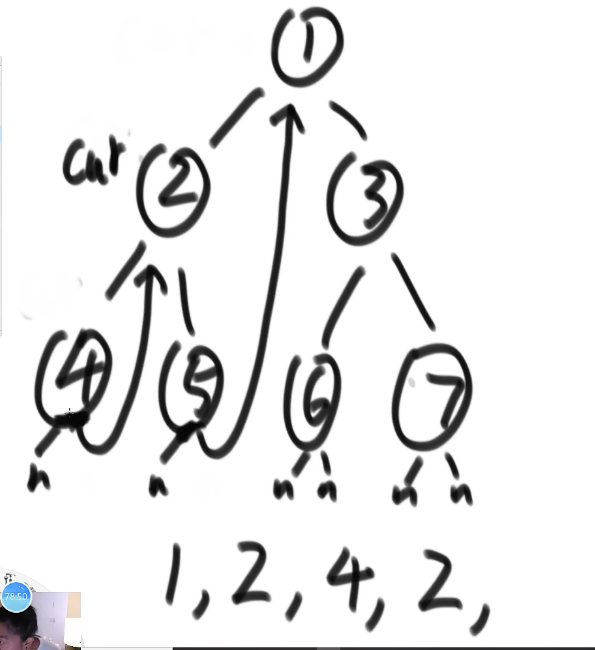 1
cur 2 3
4 5 6 7
n n n n n n
1, 2, 4, 2,
78:50